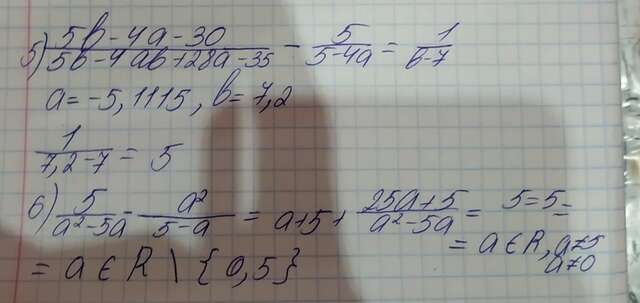 5) (5b-4a-30)/(5b-4ab+28a-35) - 5/(5-4a) = 1/(b-7)
a=-5,1115, b=7,2
1/(7,2-7) = 5
6) 5/(a²-5a) - a²/(5-a) = a+5+ (25a+5)/(a²-5a) = 5=5=
= a∈R, a≠5
a≠0
= a∈R \ {0,5}